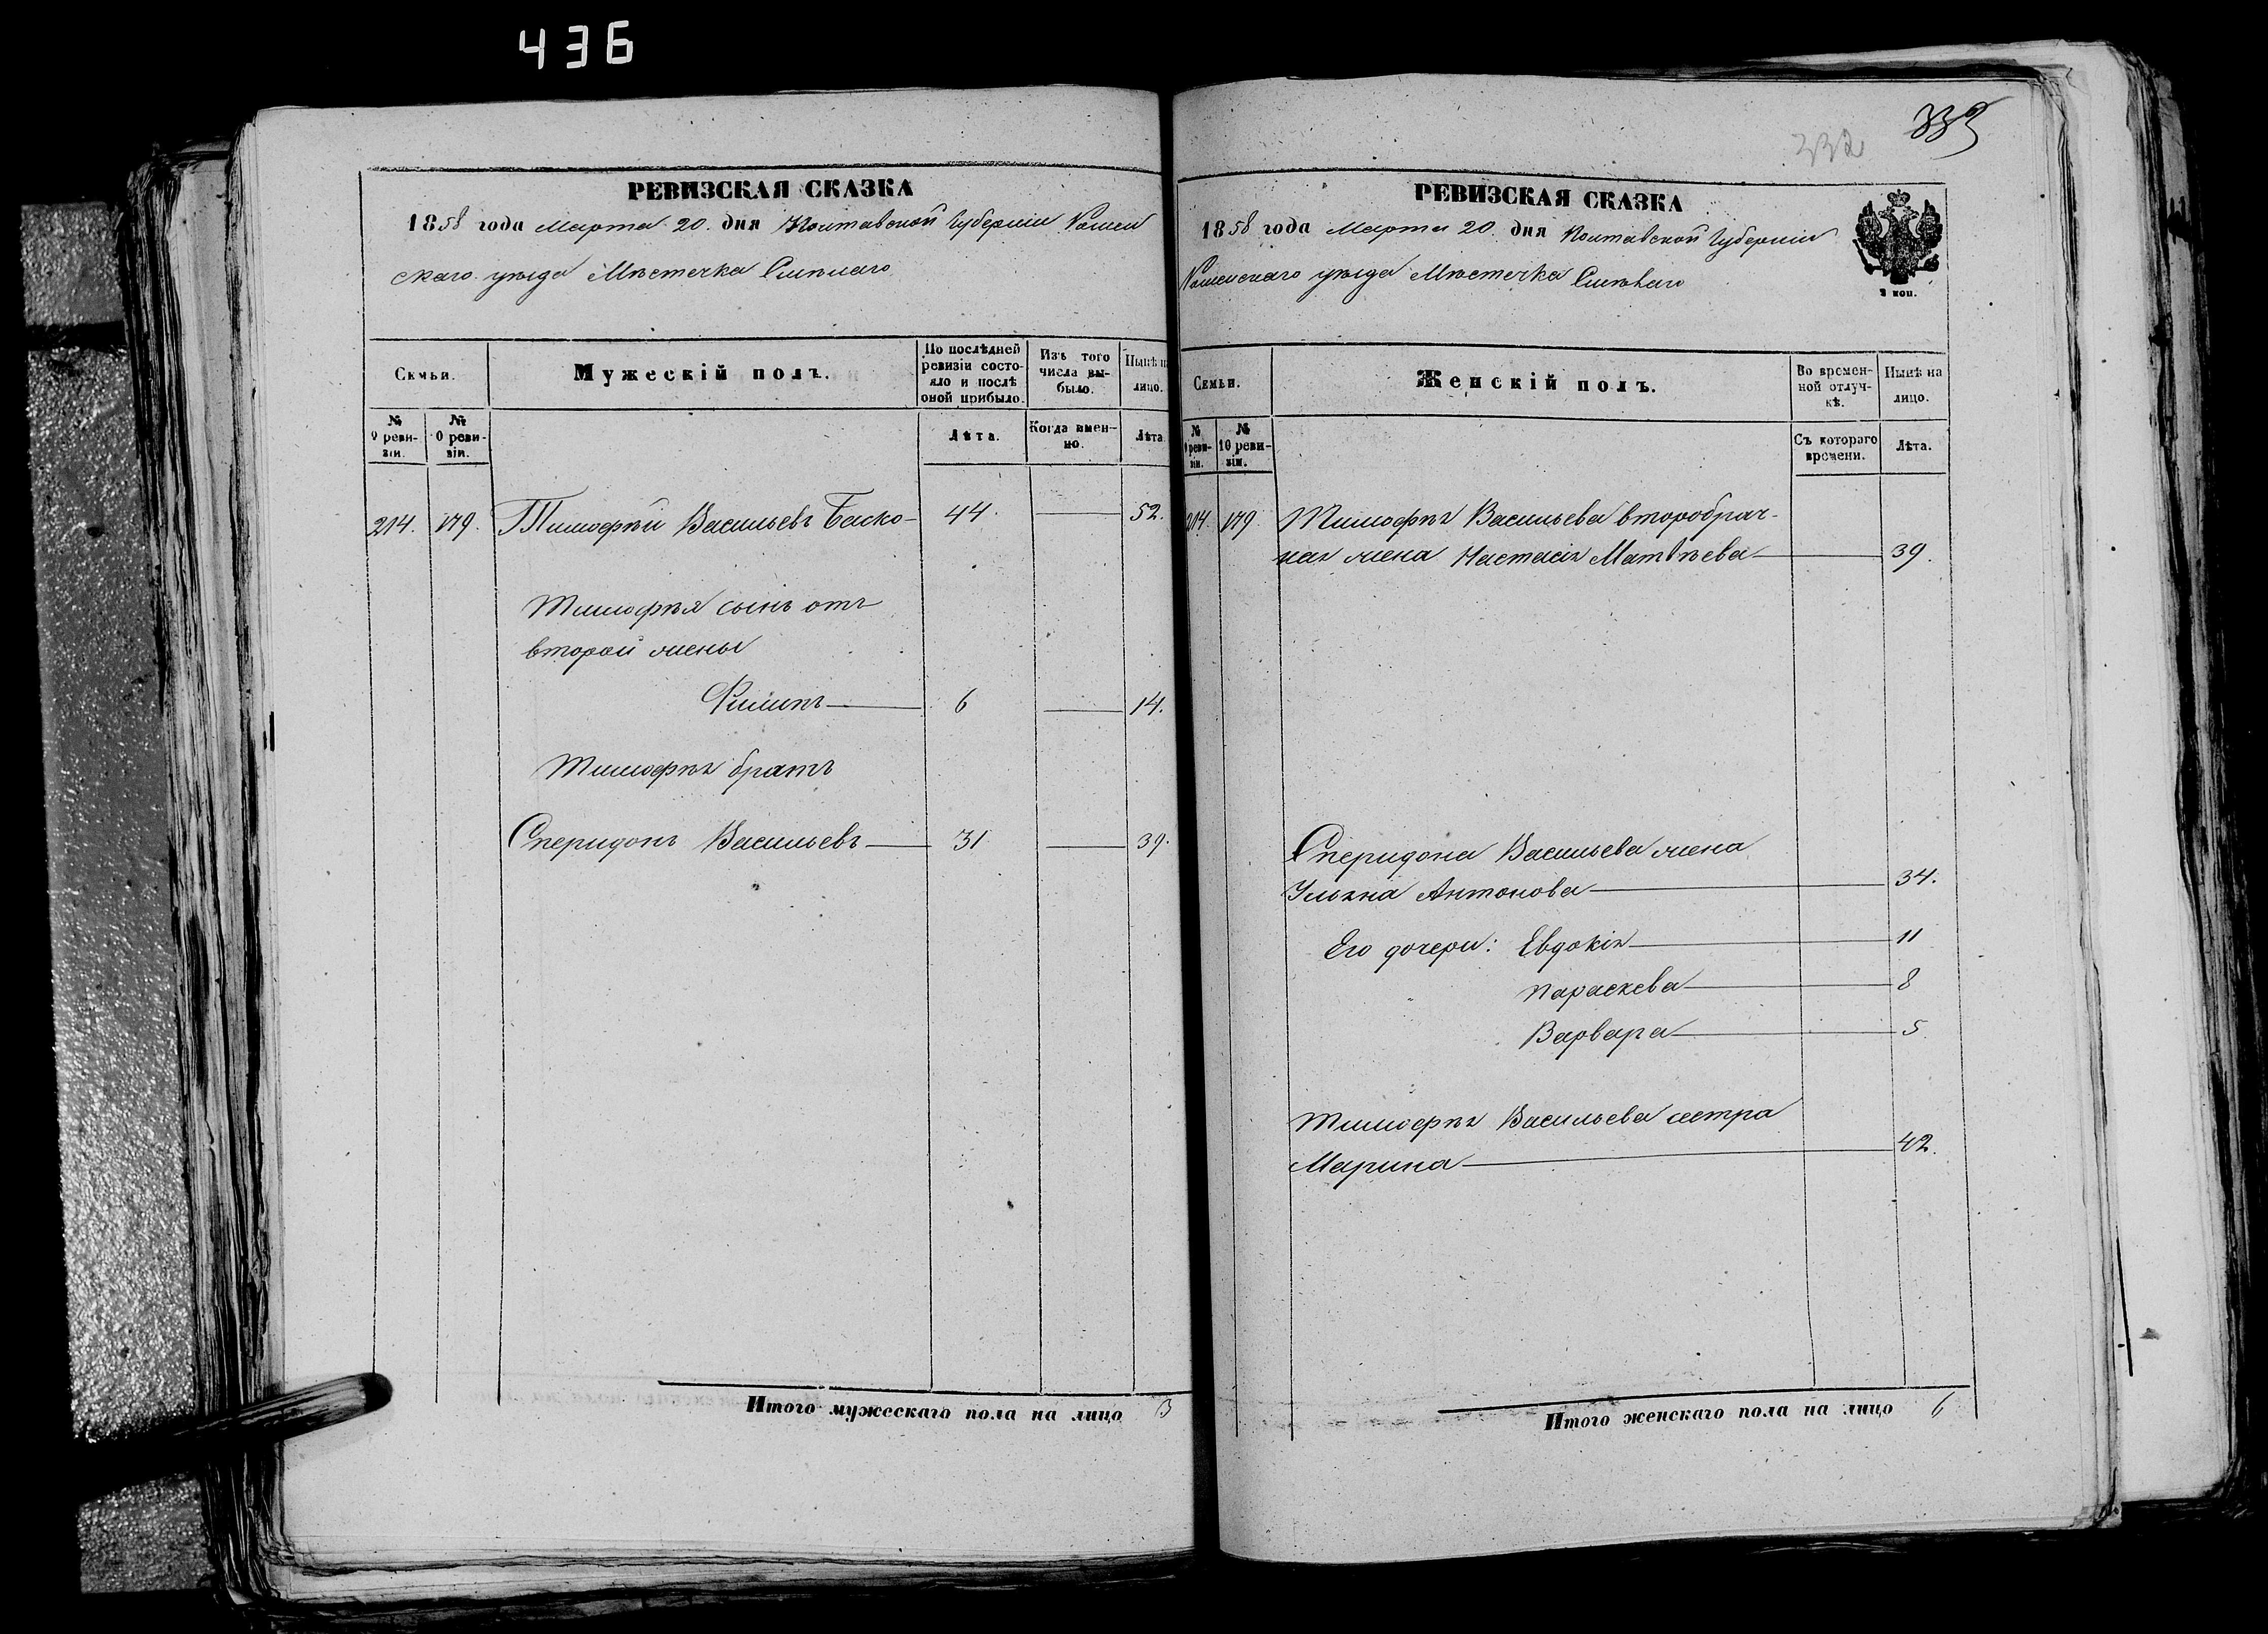 436
332
333
РЕВИЗСКАЯ СКАЗКА
1858 года Марта 20. дня Полтавской Губернiи Ромен
скаго уѣзда Мѣстечка Смѣлаго
Семьи.
Мужескiй полъ.
По послѣдней ревизiи состояло и послѣ оной прибыло.
Изъ того числа выбыло.
Нынѣ на лицо.
№ 9 ревизiи.
№ 10 ревизiи.
Лѣта.
Когда именно.
Лѣта
214. 179. Тимофѣй Васильевъ Баско- 44. — 52.
Тимофѣя сынъ отъ
второй жены
Филипъ — 6 — 14.
Тимофѣя братъ
Спиридонъ Васильевъ — 31 — 39.
Итого мужескаго пола на лицо 3
РЕВИЗСКАЯ СКАЗКА
1858 года Марта 20. дня Полтавской Губернiи
Роменскаго уѣзда Мѣстечка Смѣлаго
2 коп.
Семьи.
Женскiй полъ.
Во временной отлучкѣ.
Нынѣ на лицо.
№ 9 ревизiи.
№ 10 ревизiи.
Съ котораго времени.
Лѣта.
214. 179. Тимофѣя Васильева второбрач-
ная жена Настасiя Матвѣева — 39.
Сперидона Васильева жена
Ульяна Антонова — 34.
Его дочери: Евдокiя — 11
Параскева — 8
Варвара — 5
Тимофѣя Васильева сестра
Марина — 42.
Итого женскаго пола на лицо 6